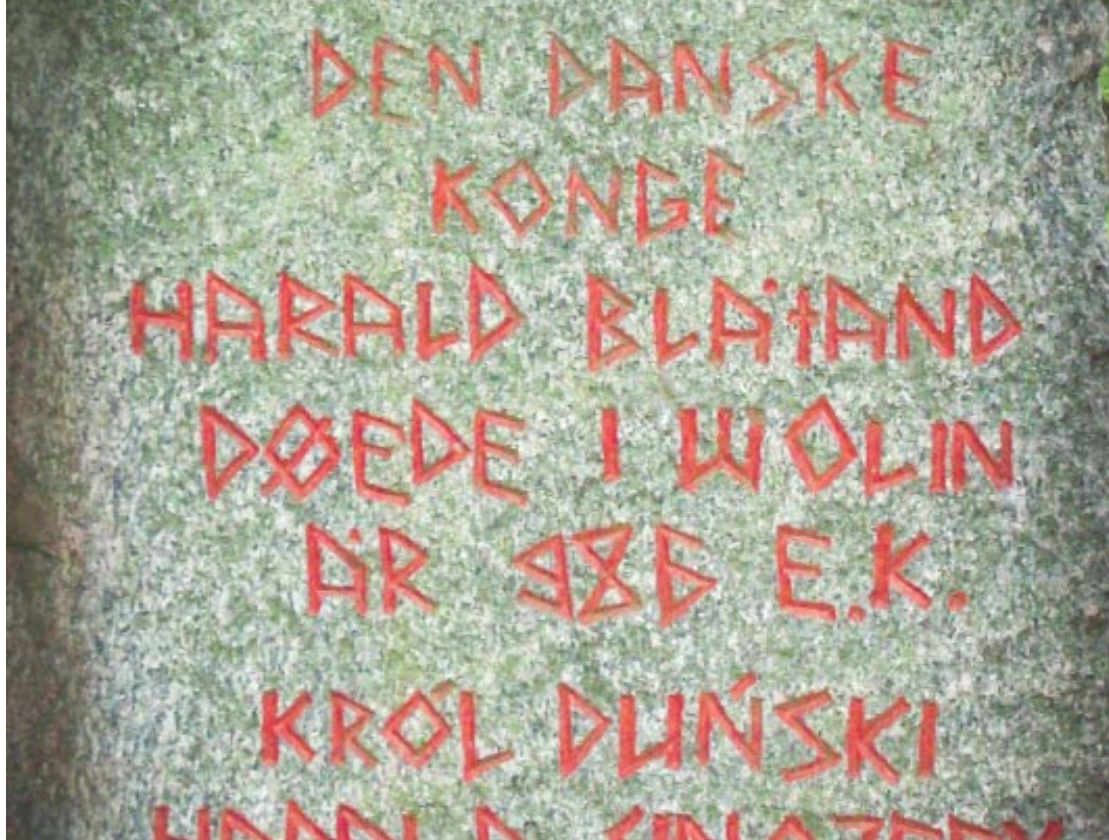 DEN DANSKE
KONGE
HARALD BLÅtAND
DØEDE I WOLIN
ÅR 986 E.K.
KRÓL DUŃSKI
HARALD